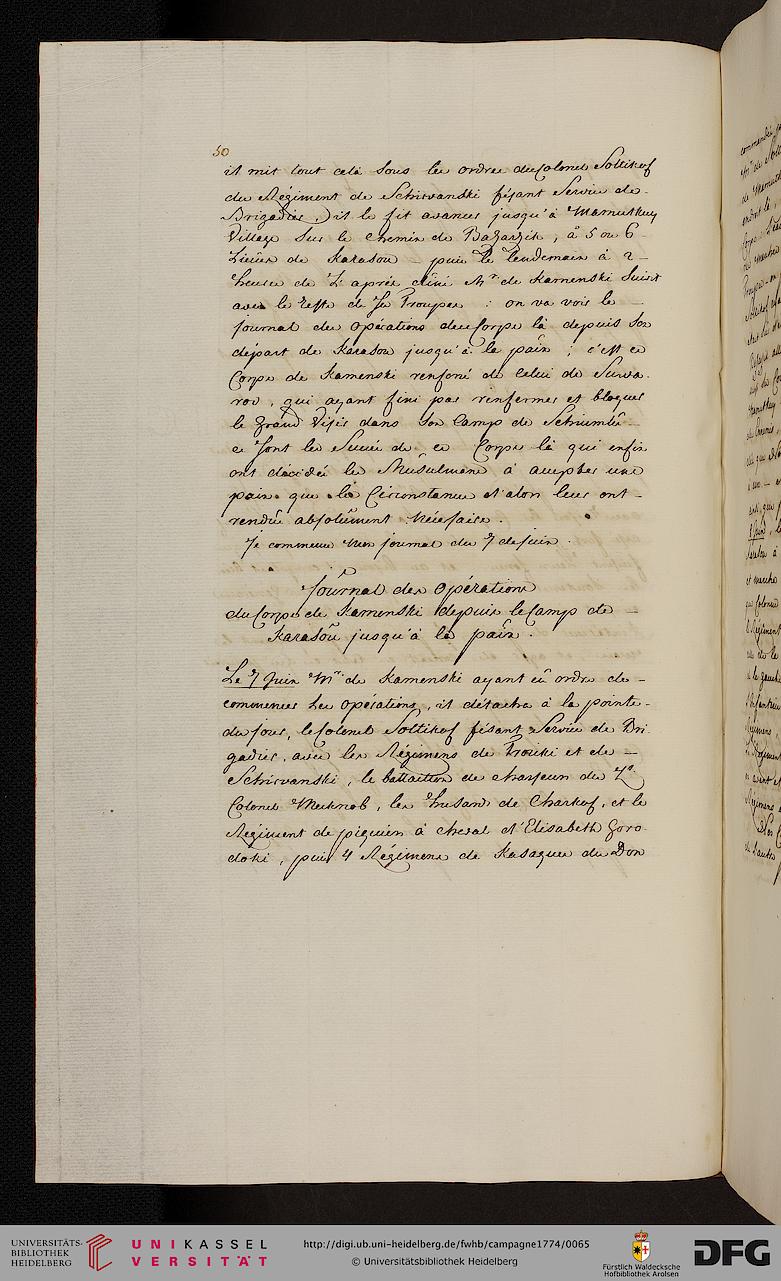 50
il mit tout cela sous les ordres du Colonel Soltikof
du Régiment de Schirvanski fésant Service de
Brigadier, il le fit avancer jusqu'à
Village sur le chemin de Bazarzik, à 5 ou 6
Lieües de Karasou puis le lendemain à 2
heures de L'après diné Mr de Kamenski Suivit
avec le reste de Ses Troupes : on va voir le
journal des opérations du Corps là depuis Son
départ de Karasou jusqu'à la paix ; c'est ce
Corps de Kamenski renforcé de celui de Suwa-
row, qui ayant fini par renfermer et bloquer
le grand Visir dans Son Camp de Schiumla
ce sont les Succès de ce Corps là qui enfin
ont décidé les Musulmans à accepter une
paix que la Circonstance d'alors leur ont
rendüe absolument nécessaire.
Je commence mon journal du 7 de Juin.
Journal des Opérations
du Corps de Kamenski depuis le Camp de
Karasou jusqu'à la paix.
Le 7 Juin Mr de Kamenski ayant eû ordre de
commencer Ses opérations, il détacha à la pointe
du jour, le Colonel Soltikof fésant Service de Bri-
gadier, avec les Régimens de Trouki et de
Schirvanski, le battaillon de chasseurs du Lt
Colonel Meknob, les husards de Charkof, et le
Régiment de piquiers à cheval d'Elisabeth Goro-
doki, puis 4 Régimens de Kasaques du Don
UNIVERSITÄTS-
BIBLIOTHEK
HEIDELBERG
UNIKASSEL
VERSITÄT
http://digi.ub.uni-heidelberg.de/fwhb/campagne1774/0065
© Universitätsbibliothek Heidelberg
Fürstlich Waldecksche
Hofbibliothek Arolsen
DFG